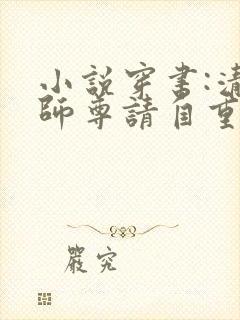 小說穿書:清
師尊請自重
嚴究